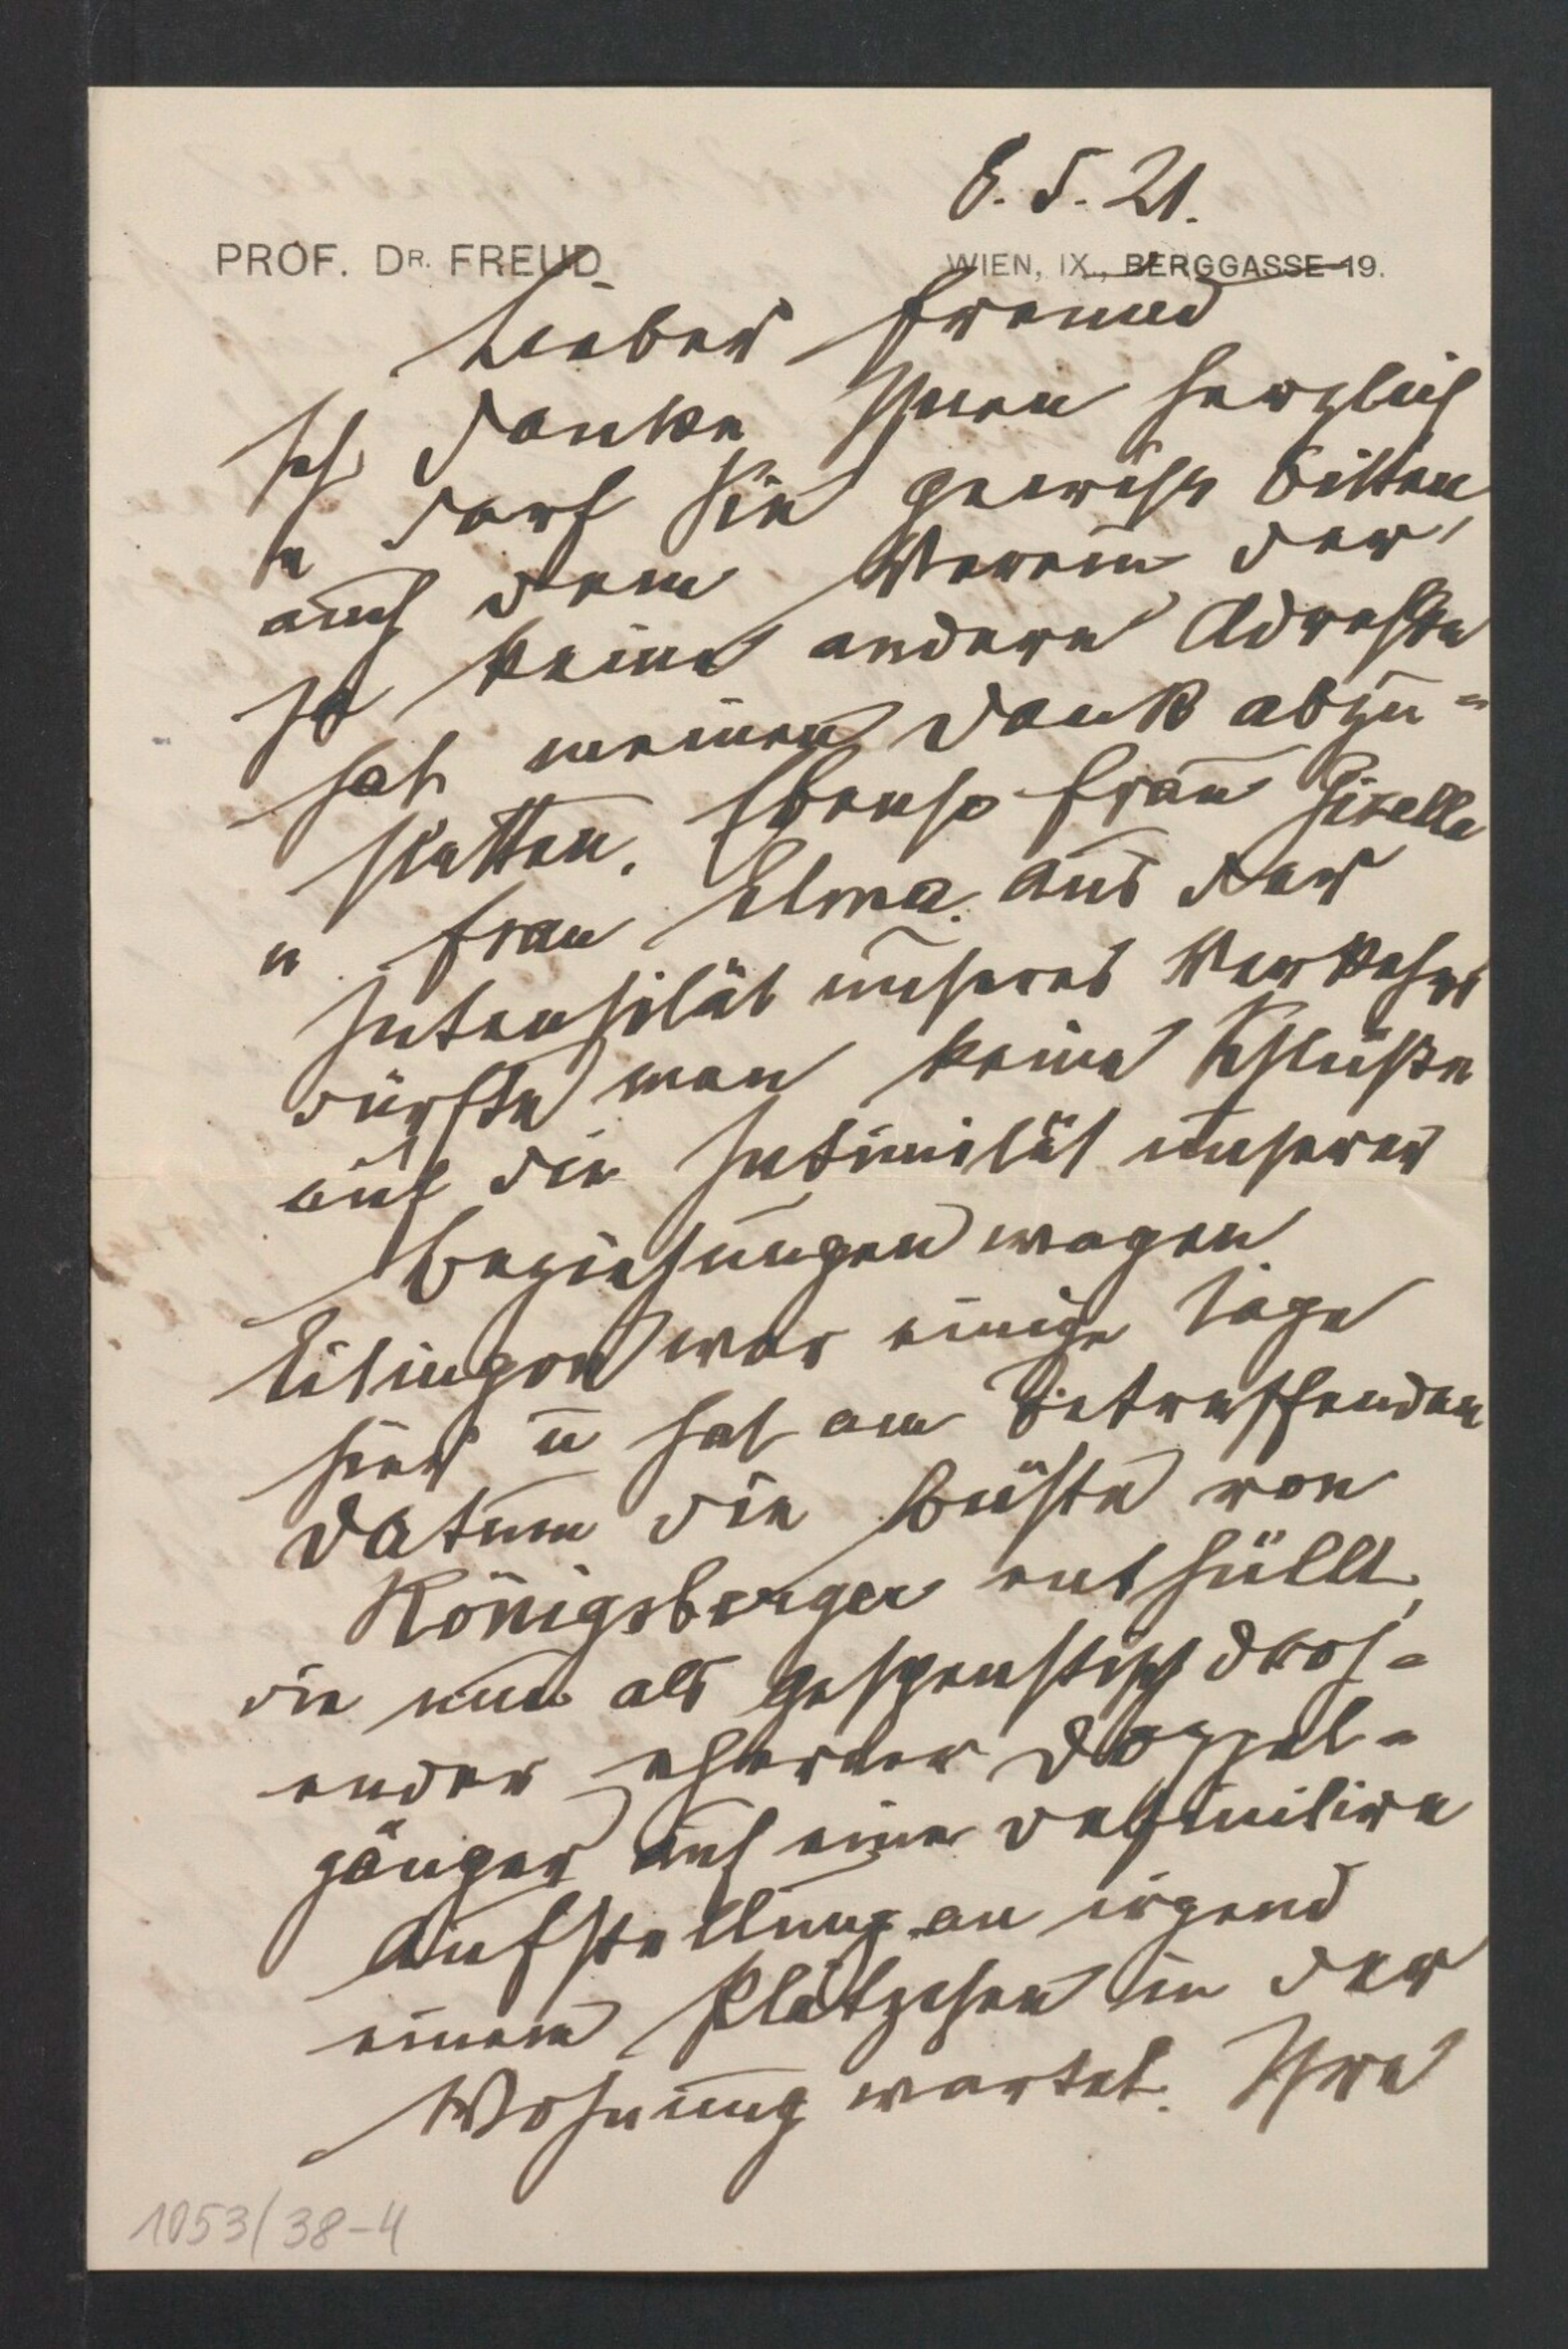 8. 5. 21.
PROF. DR. FREUD
WIEN, IX., BERGGASSE 19.
Lieber Freund
Ich danke Ihnen herzlich
u darf Sie gewiss bitten
auch dem Verein der
ja keine andere Adresse
hat meinen Dank abzu-
statten. Ebenso Frau Gisella
u Frau Elma. Aus der
Intensität unseres Verkehrs
dürfte man keine Schlüsse
auf die Intimität unserer
Beziehungen wagen
Eitingon war einige Tage
hier u hat am betreffenden
Datum die Büste von
Königsberger enthüllt,
die nun als gespenstisch droh-
ender eherner Doppel-
gänger auf eine definitive
Aufstellung an irgend
einem Plätzchen in der
Wohnung wartet. Ihre
1053/38-4